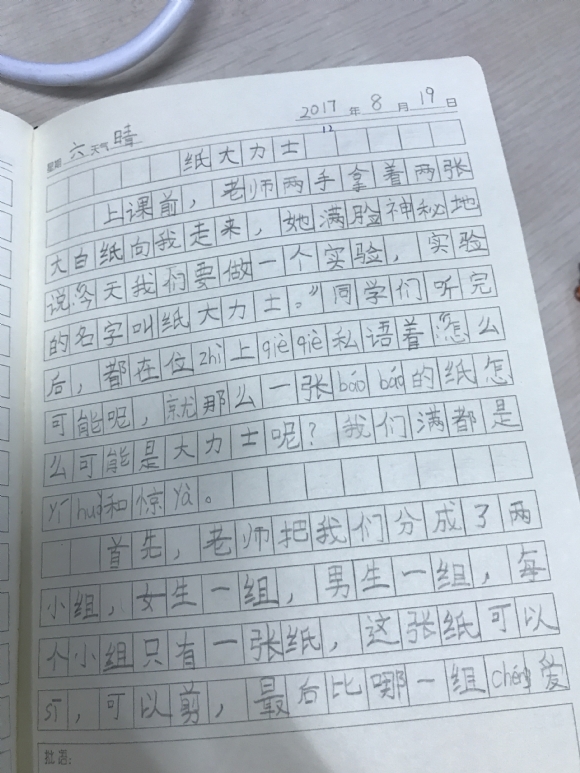 2017年8月19日
星期六 天气晴
纸大力士
上课前，老师两手拿着两张
大白纸向我走来，她满脸神秘地
说："今天我们要做一个实验，实验
的名字叫纸大力士。"同学们听完
后，都在位zhì上qièqiè私语着："怎么
可能呢，就那么一张báo báo的纸怎
么可能是大力士呢？我们满都是
yí huò和惊yà。
首先，老师把我们分成了两
小组，女生一组，男生一组，每
个小组只有一张纸，这张纸可以
sī，可以剪，最后比哪一组chéng爱
批语：